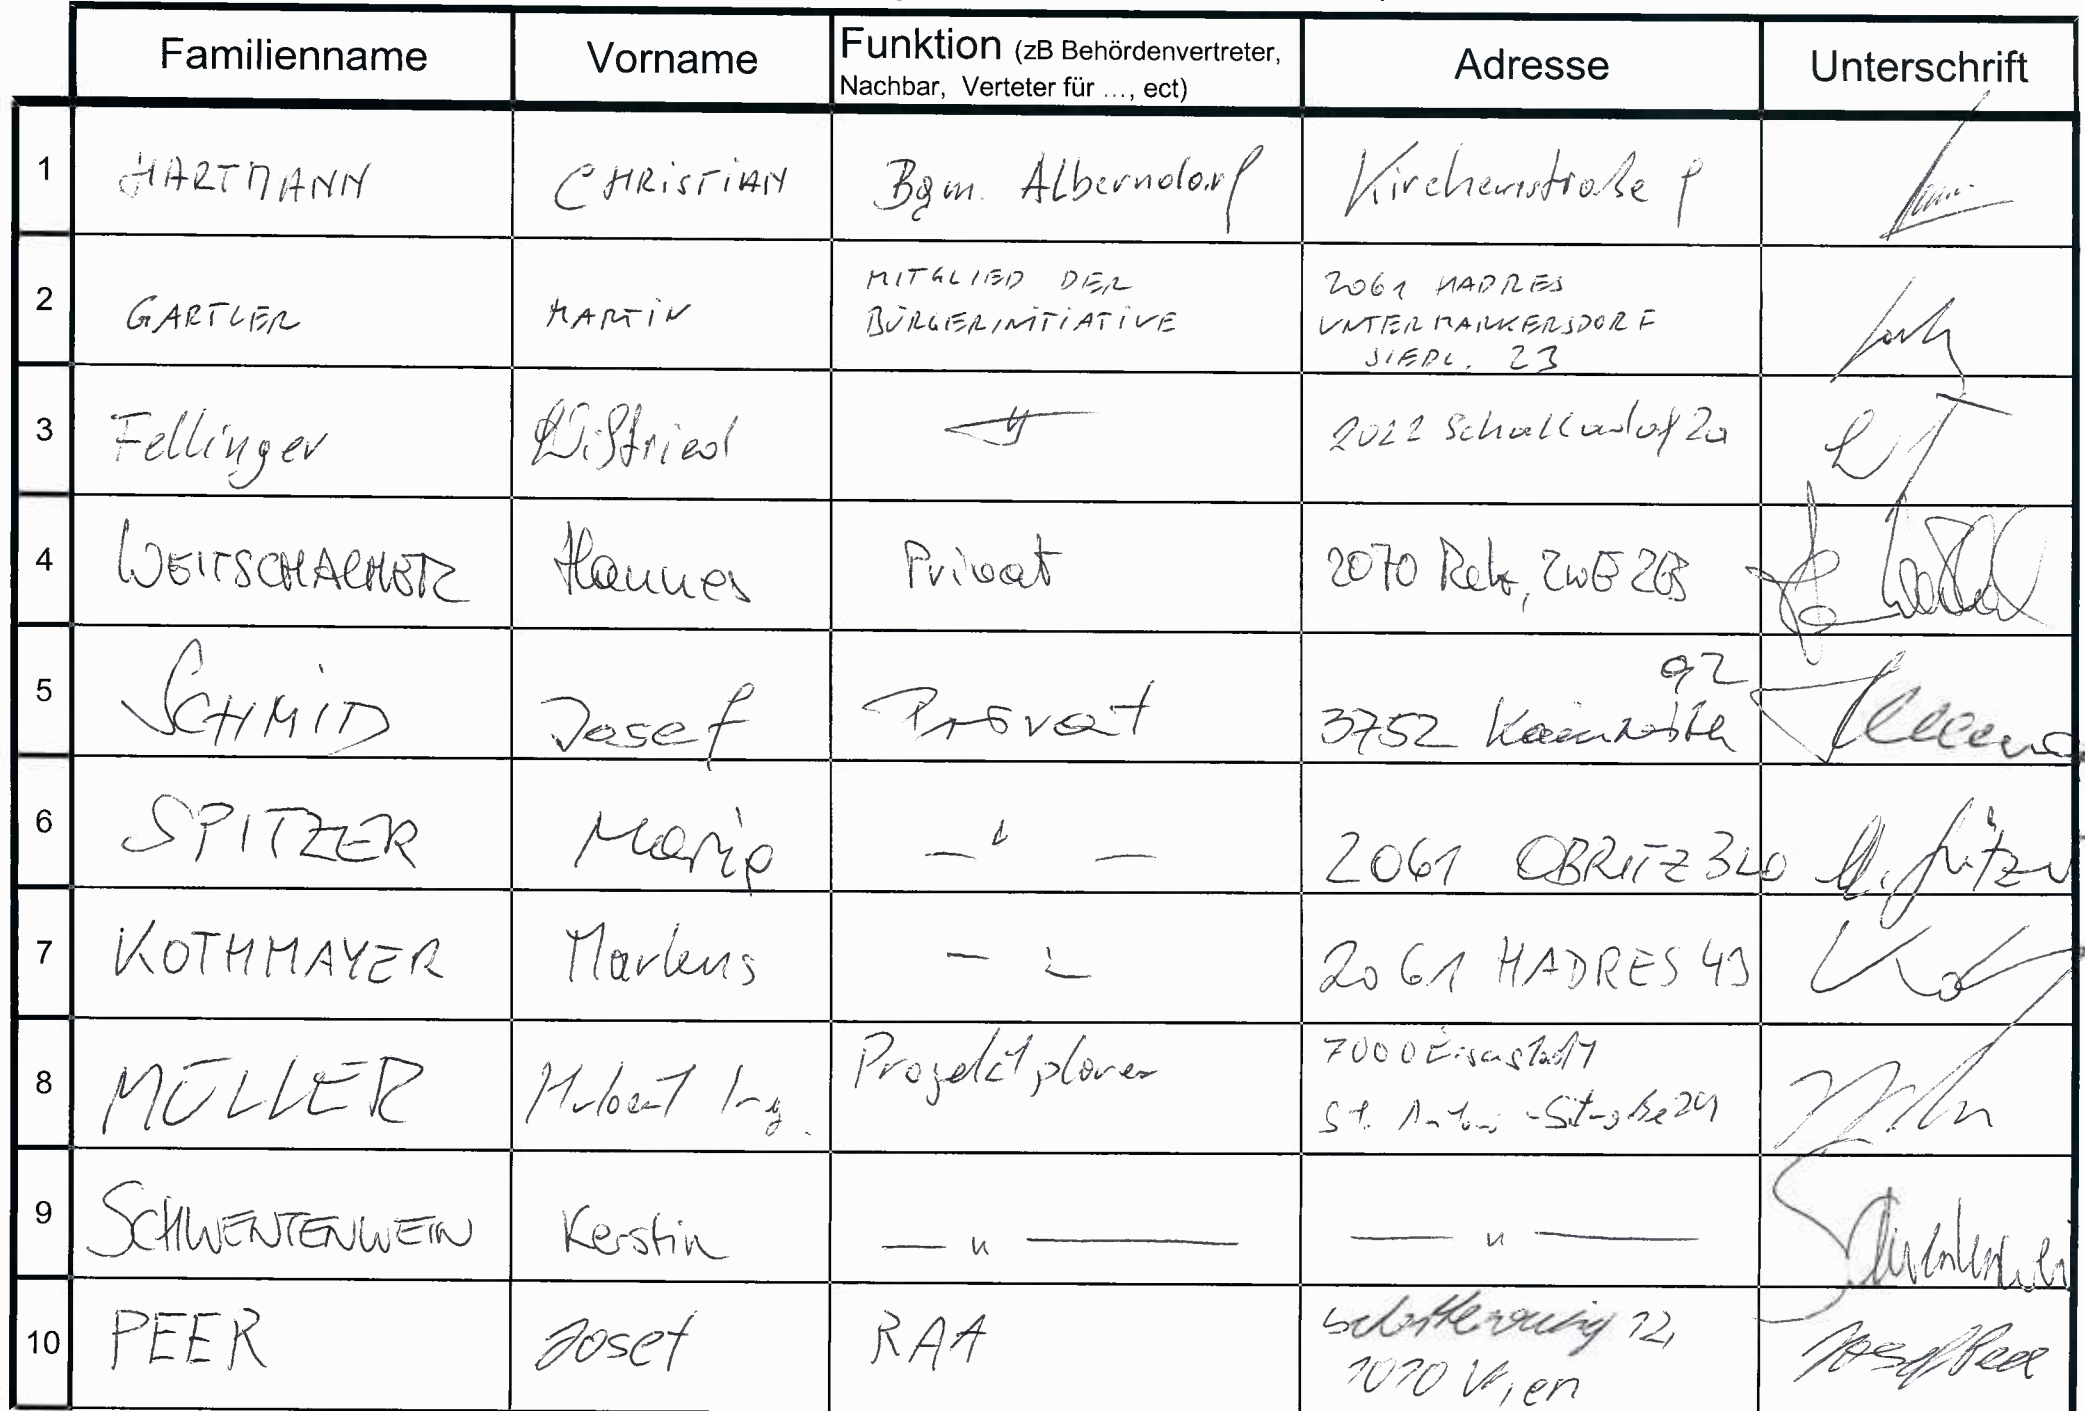 Familienname Vorname Funktion (zB Behördenvertreter, Nachbar, Verteter für ..., ect) Adresse Unterschrift
1 HARTMANN CHRISTIAN Bgm. Alberndorf Kirchenstraße
2 GARTLER MARTIN MITGLIED DER BÜRGERINITIATIVE 2061 HADRES UNTERMARKERSDORF SIEDL. 23
3 Fellinger Wilfried 2022 2a
4 Hannes Privat 2070 Retz,
5 SCHMID Josef Privat 3752 92
6 SPITZER Maria — " — 2061 OBRITZ 340
7 KOTHMAYER Markus 2061 HADRES 43
8 MÜLLER Hubert Ing. Projektplaner 7000 Eisenstadt St. Antoni-Straße
9 SCHWENTENWEIN Kerstin — " — — " —
10 PEER Josef RAA Schottenring 12, 1010 Wien Josef Peer